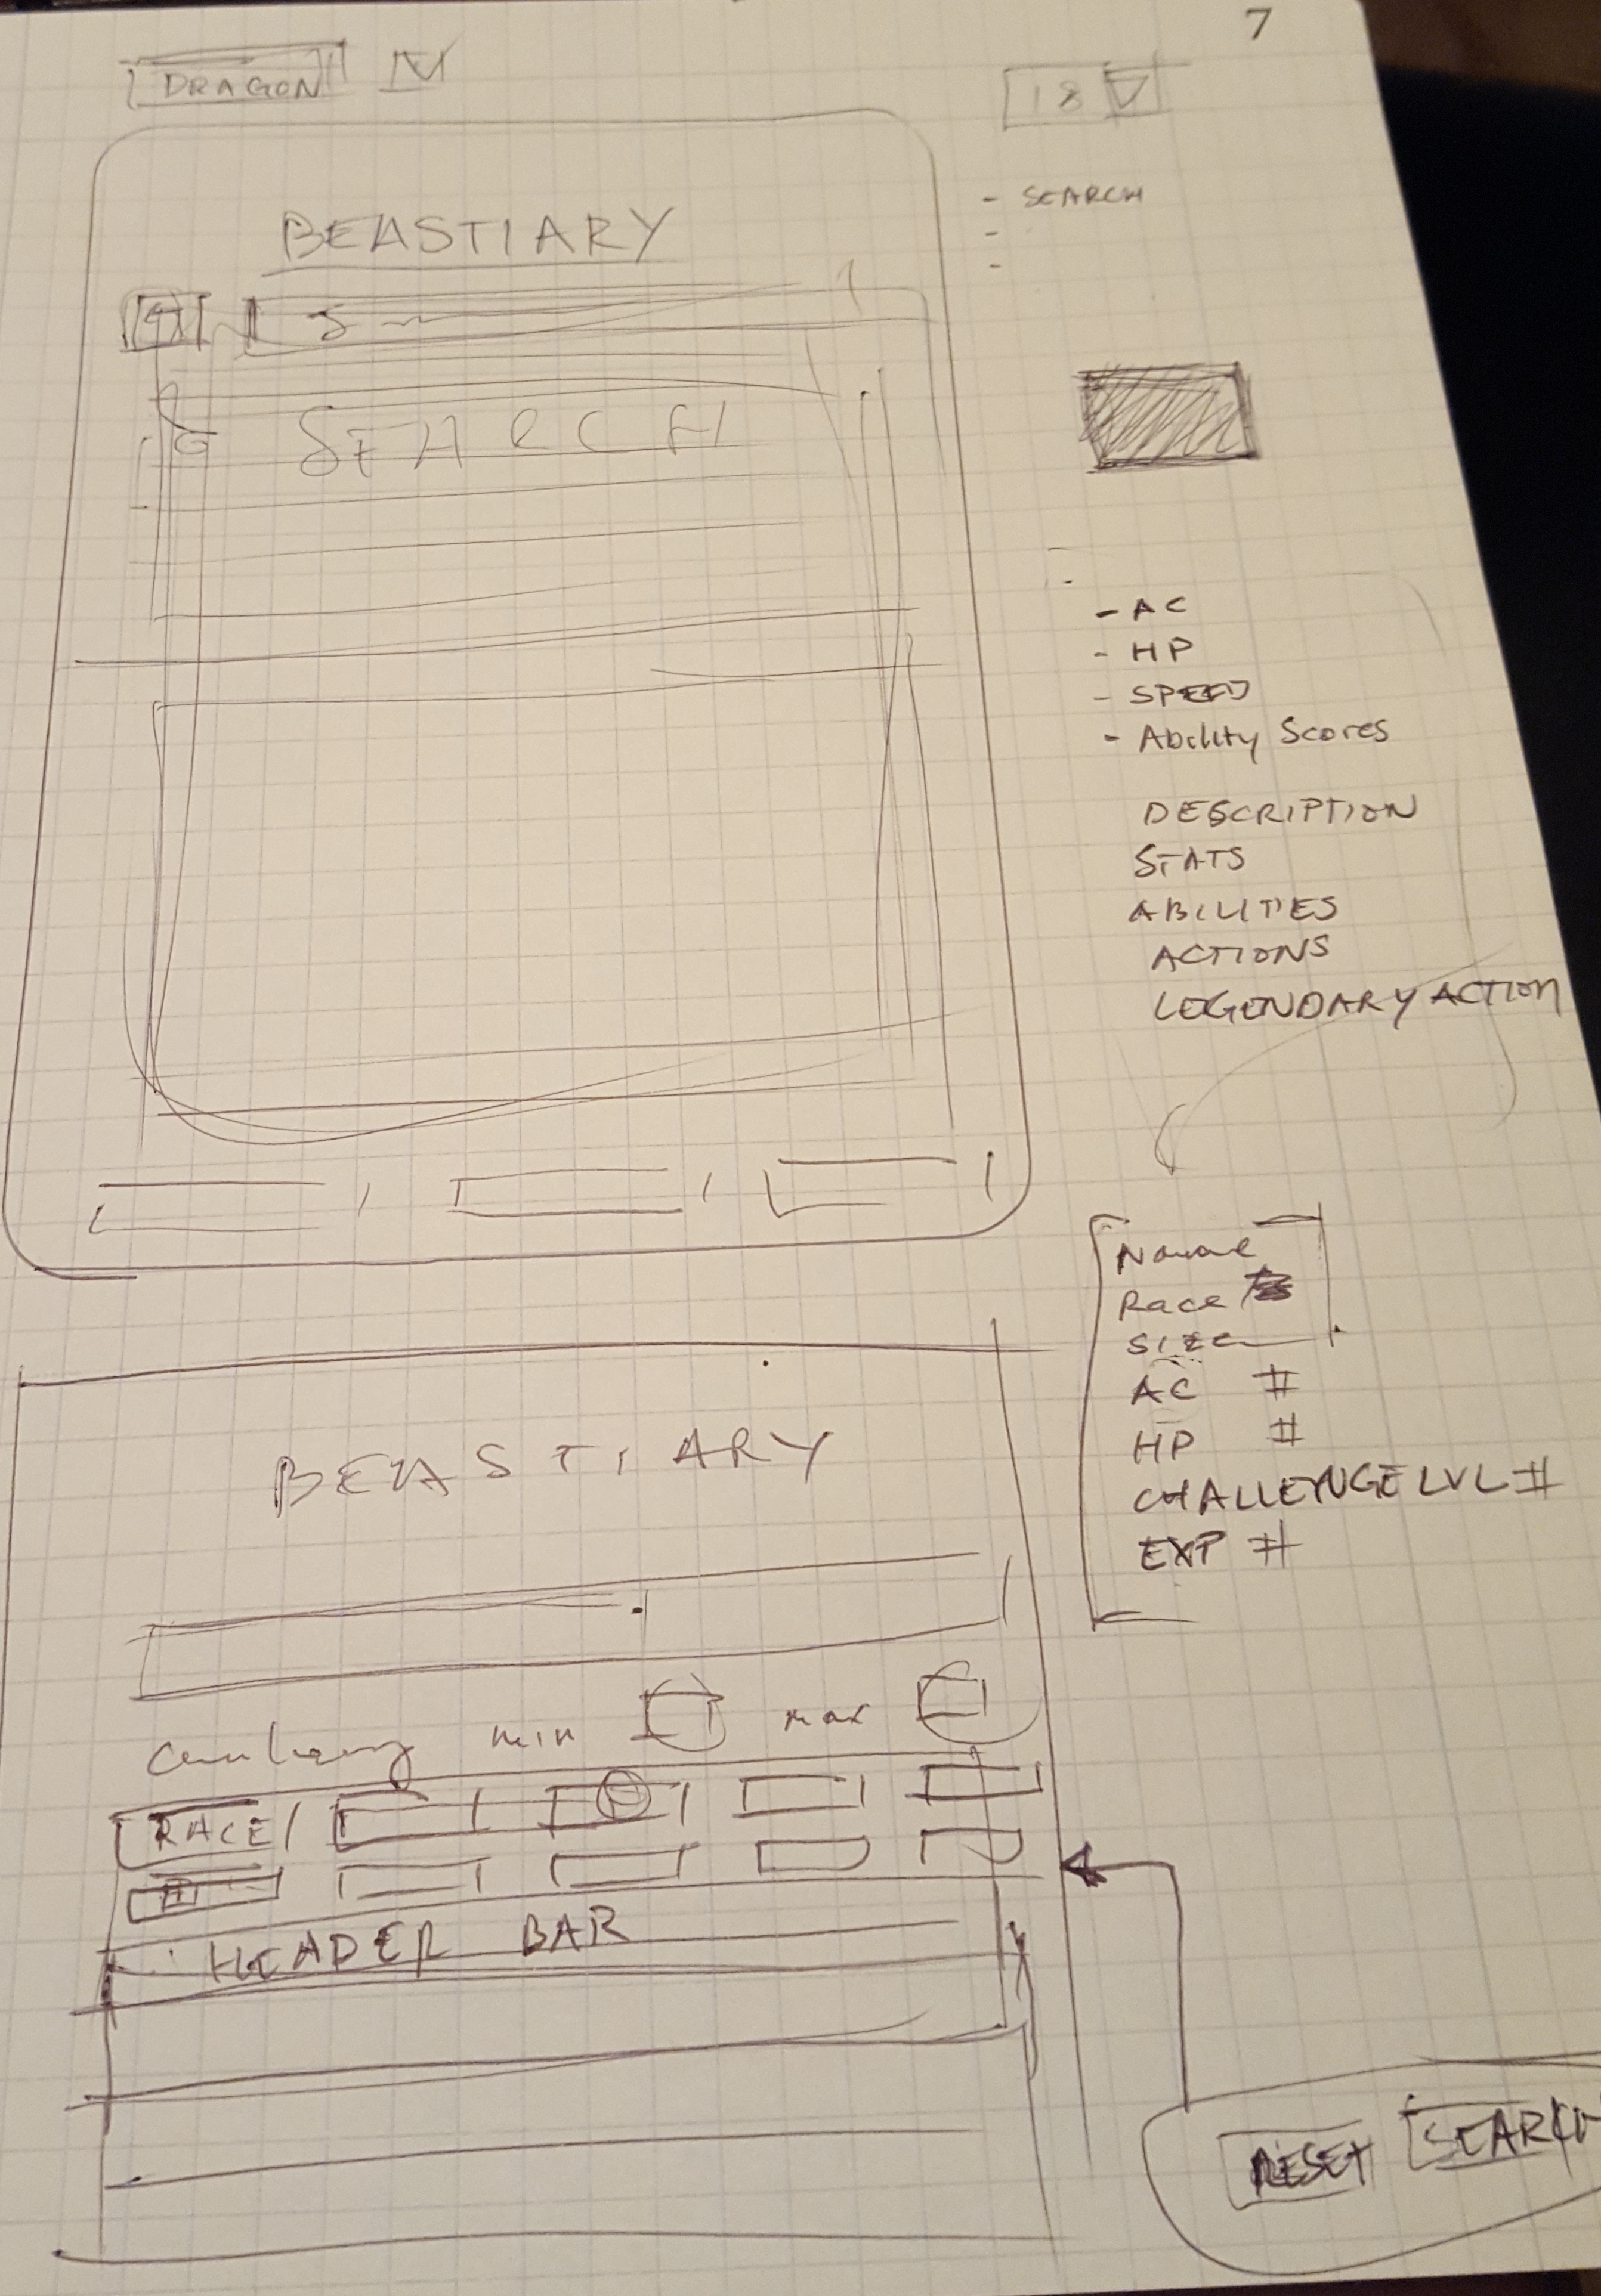 7
DRAGON
18
- SEARCH
-
-
BEASTIARY
SEARCH
- AC
- HP
- SPEED
- Ability Scores
DESCRIPTION
STATS
ABILITIES
ACTIONS
LEGENDARY ACTION
Name
Race
Size
AC #
HP #
CHALLENGE LVL #
EXP #
BEASTIARY
min max
RACE
HEADER BAR
RESET SEARCH